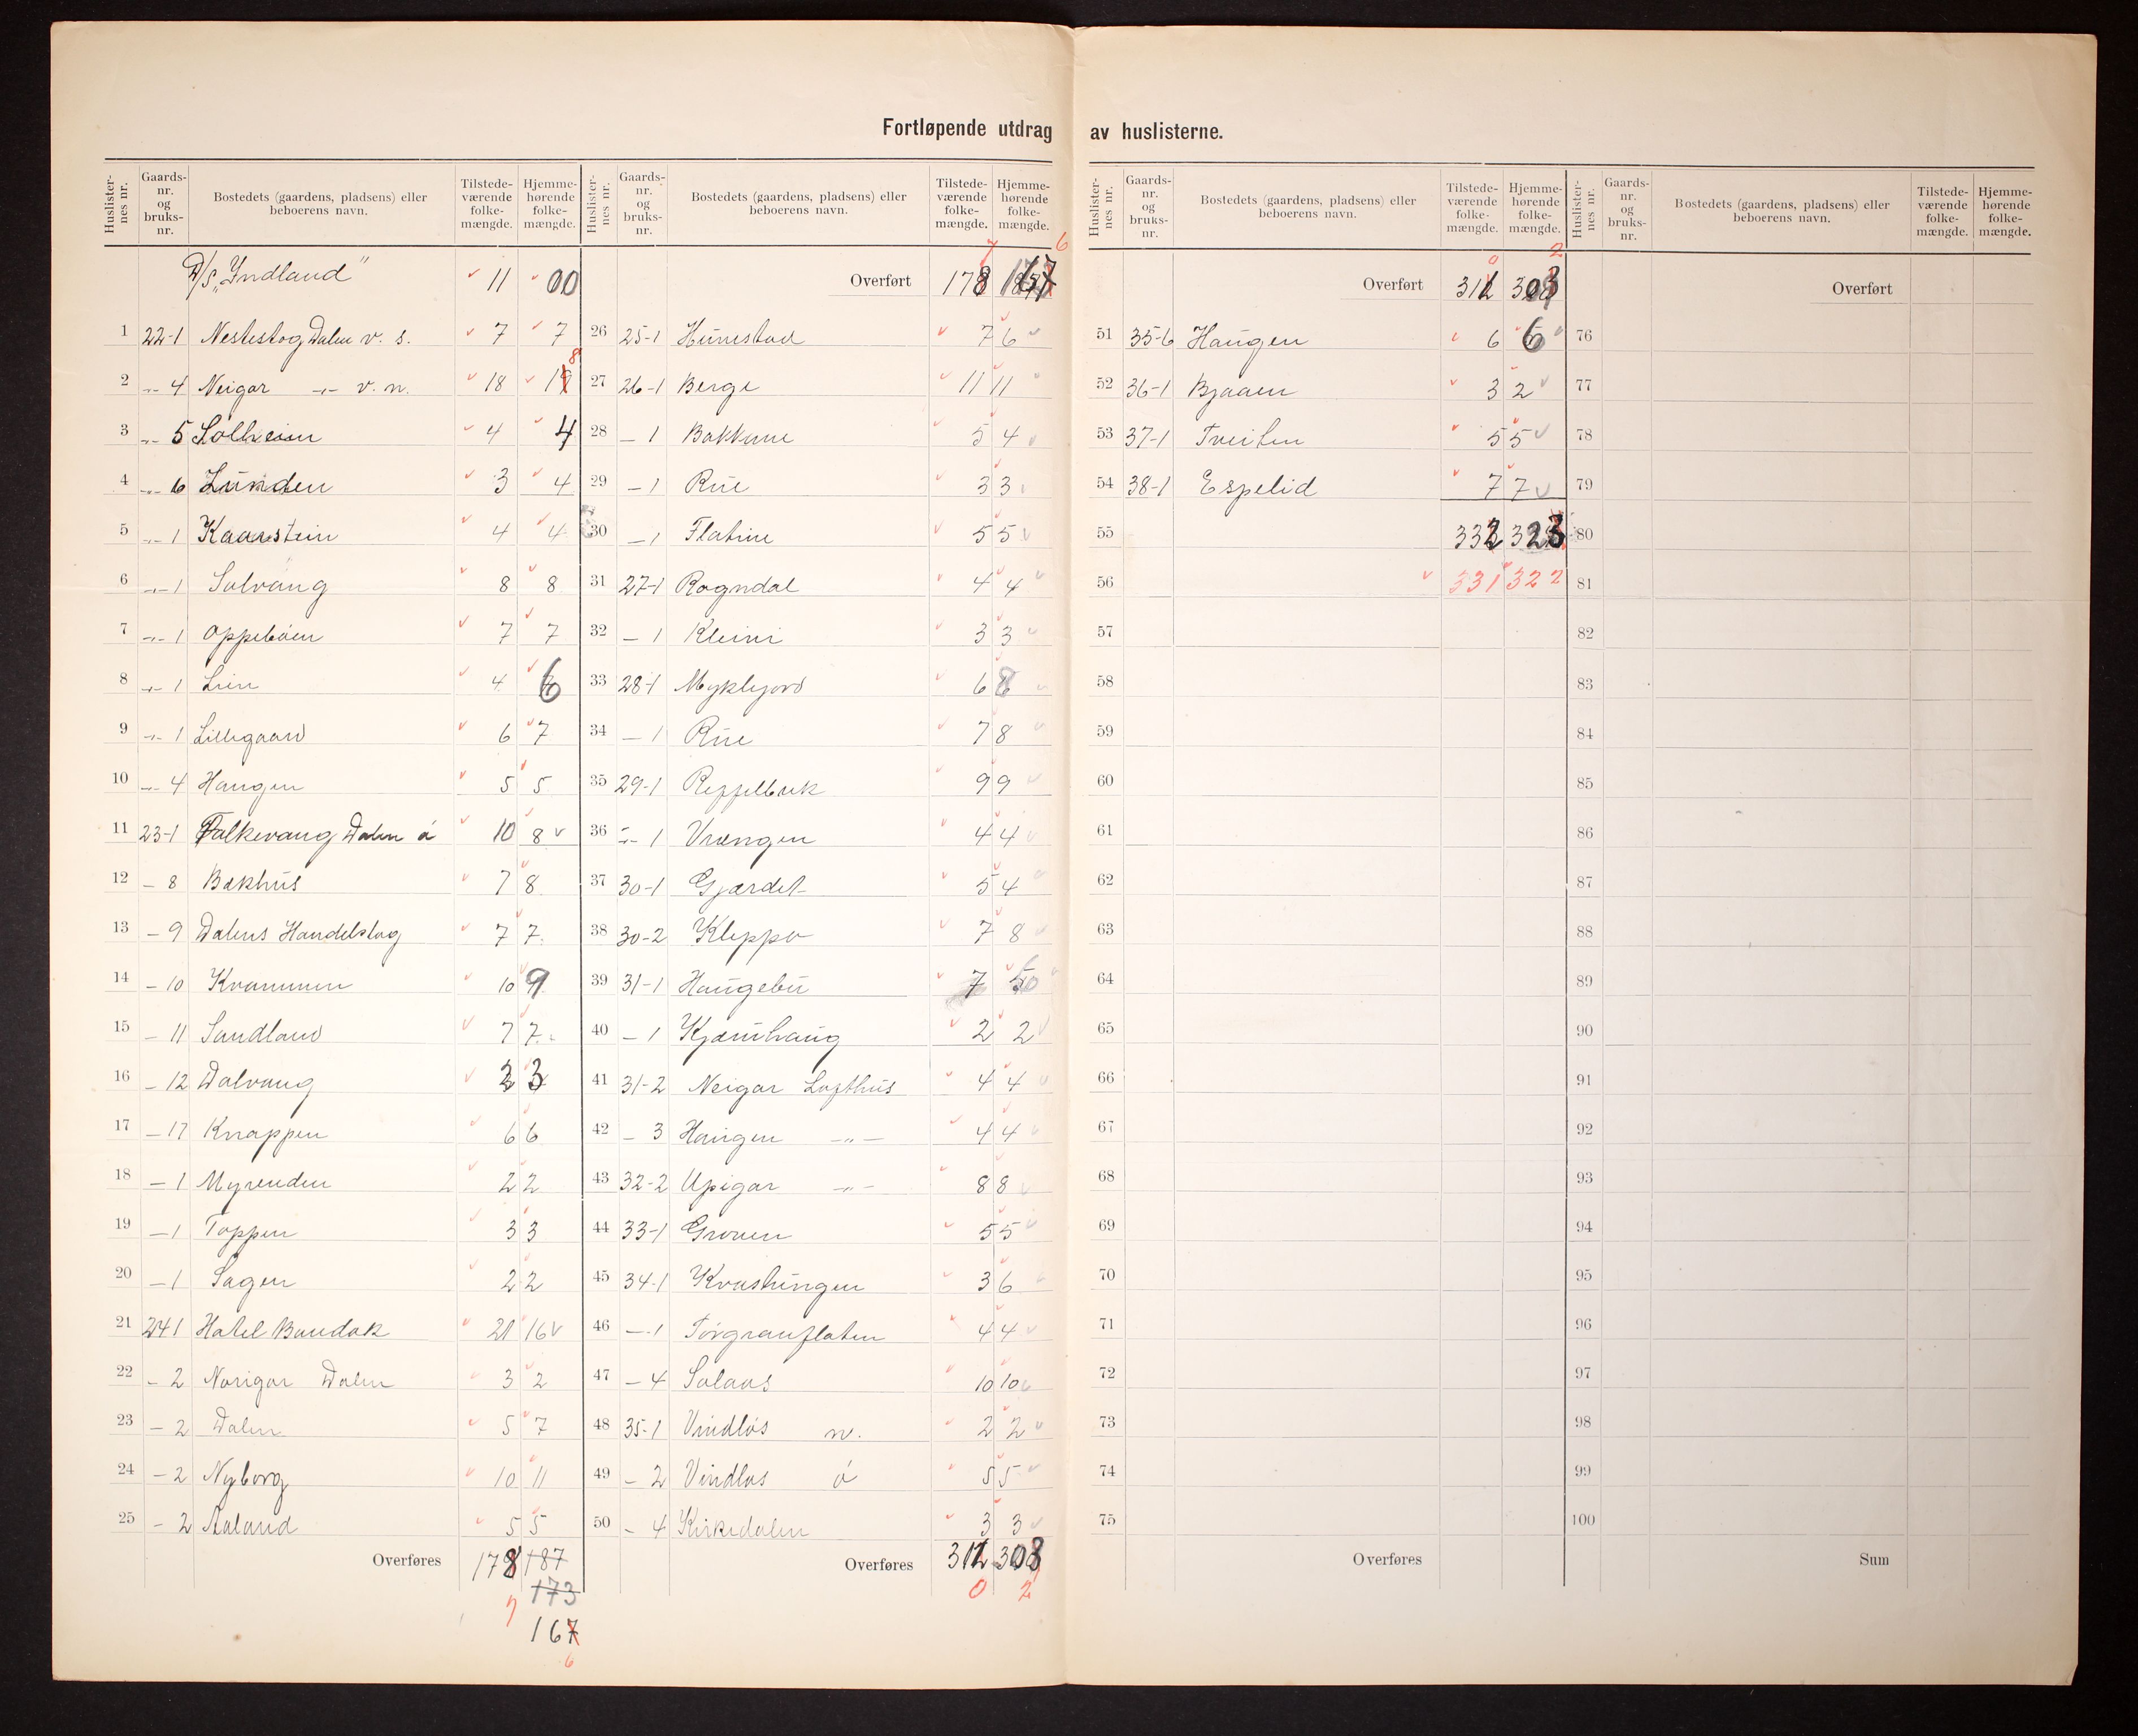 Fortløpende utdrag av huslisterne.
Huslister-nes nr. Gaards-nr. og bruks-nr. Bostedets (gaardens, pladsens) eller beboerens navn. Tilstede-værende folke-mængde. Hjemme-hørende folke-mængde.
D/S „Indland" 11 00
1 22-1 Nestestog Dalen v. s. 7 7
2 -"- 4 Neigar -"- v. n. 18 18
3 -"- 5 Solheim 4 4
4 -"- 6 Lunden 3 4
5 -"- 1 Kaarstein 4 4
6 -"- 1 Solvang 8 8
7 -"- 1 Oppebøen 7 7
8 -"- 1 Lien 4 6
9 -"- 1 Lillegaard 6 7
10 -"- 4 Haugen 5 5
11 23-1 Falkevang Dalen ø 10 8
12 - 8 Bakhus 7 8
13 - 9 Dalens Handelslag 7 7
14 - 10 Kvammen 10 9
15 - 11 Sandland 7 7
16 - 12 Dalvang 3 3
17 - 17 Knappen 6 6
18 - 1 Myrenden 2 2
19 - 1 Toppen 3 3
20 - 1 Sagen 2 2
21 24 1 Hotel Bandak 21 16
22 - 2 Norigar Dalen 3 2
23 - 2 Dalen 5 7
24 - 2 Nyborg 10 11
25 - 2 Aaland 5 5
Overføres 178 187
173
7 167
6
Huslister-nes nr. Gaards-nr. og bruks-nr. Bostedets (gaardens, pladsens) eller beboerens navn. Tilstede-værende folke-mængde. Hjemme-hørende folke-mængde.
7 6
Overført 178 167
26 25-1 Hunestad 7 6
27 26-1 Berge 11 11
28 - 1 Bakkune 5 4
29 - 1 Rue 3 3
30 - 1 Flatine 5 5
31 27-1 Rogndal 4 4
32 - 1 Kleini 3 3
33 28-1 Myklejord 6 8
34 - 1 Rue 7 8
35 29-1 Reppelbek 9 9
36 -"- 1 Vrængen 4 4
37 30-1 Gjærdet 5 4
38 30-2 Kleppo 7 8
39 31-1 Haugebu 7
40 - 1 Kjømhaug 2 2
41 31-2 Neigar Lofthus 4 4
42 - 3 Haugen -"- 4 4
43 32-2 Upigar -"- 8 8
44 33-1 Groven 5 5
45 34-1 Kvashaugen 3 6
46 - 1 Torgranflaten 4 4
47 - 4 Solaas 10 10
48 35-1 Vindløs n. 2 2
49 - 2 Vindløs ø 5 5
50 - 4 Kirkedalen 3 3
Overføres 311 303
0 2
Huslister-nes nr. Gaards-nr. og bruks-nr. Bostedets (gaardens, pladsens) eller beboerens navn. Tilstede-værende folke-mængde. Hjemme-hørende folke-mængde.
0 2
Overført 311 303
51 35-6 Haugen 6 6
52 36-1 Bjaaen 3 2
53 37-1 Tveiten 5 5
54 38-1 Espelid 7 7
55 332 323
56 331 322
57
58
59
60
61
62
63
64
65
66
67
68
69
70
71
72
73
74
75
Overføres
Huslister-nes nr. Gaards-nr. og bruks-nr. Bostedets (gaardens, pladsens) eller beboerens navn. Tilstede-værende folke-mængde. Hjemme-hørende folke-mængde.
Overført
76
77
78
79
80
81
82
83
84
85
86
87
88
89
90
91
92
93
94
95
96
97
98
99
100
Sum